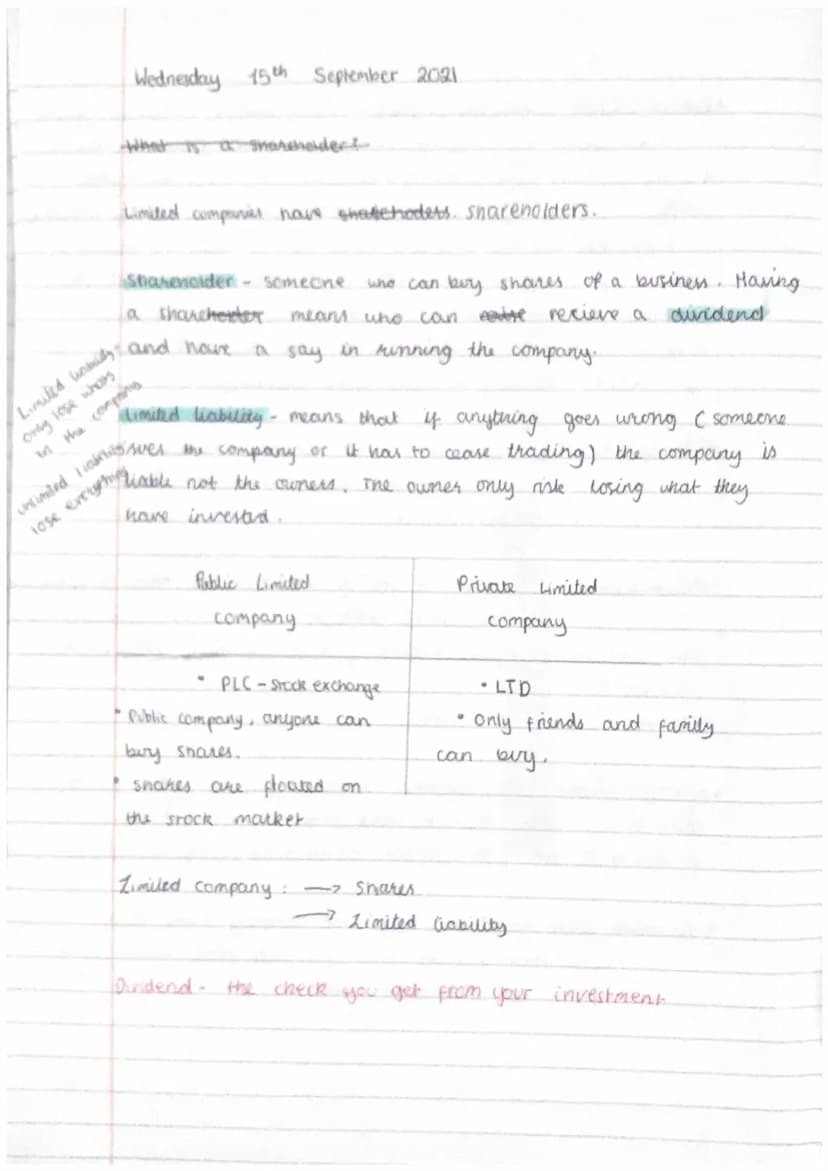 Wednesday 15th September 2021
What is a shareholder?
Limited companies have shakehodets. shareholders.
Shareholder - someone who can buy shares of a business. Having
a shareholder means who can recieve a dividend
and have a say in running the company.
Limited liability -
only lose whats
in the company
Limited liability - means that if anything goes wrong (someone
sues the company or it has to cease trading) the company is
liable not the owners. The owner only risk losing what they
have invested.
unlimited liability
lose everything
Public Limited
company
Private Limited
company
• PLC - stock exchange
• Public company, anyone can
buy shares.
• shares are floated on
the stock market
• LTD
• Only friends and family
can buy.
Limited company : → Shares
→ Limited liability
Dividend - the check you get from your investment.